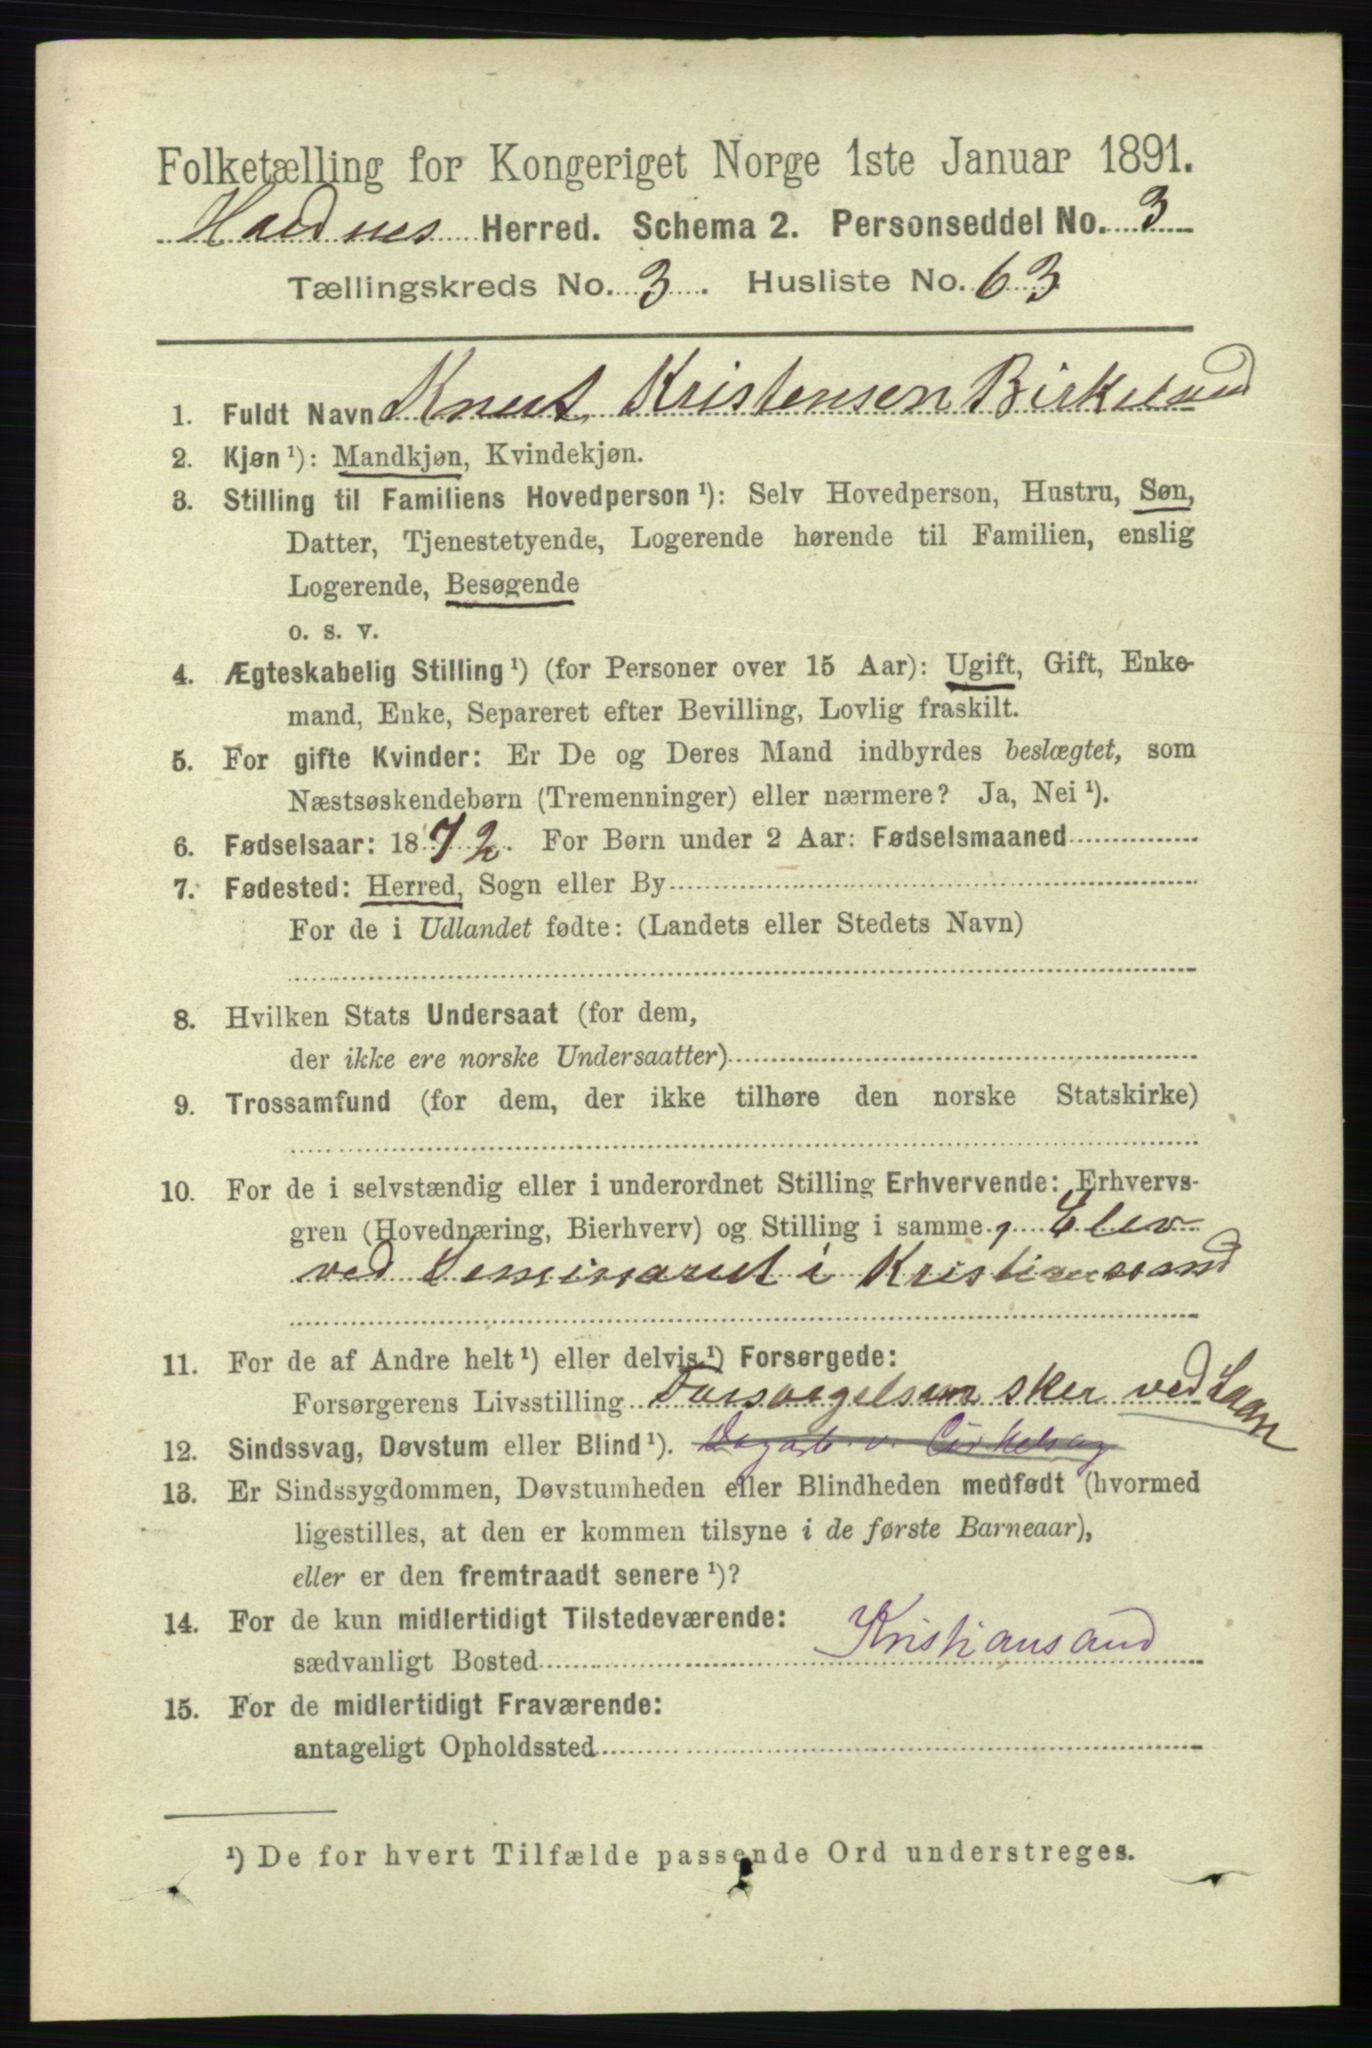 Folketælling for Kongeriget Norge 1ste Januar 1891.
Herred. Schema 2. Personseddel No. 3
Tællingskreds No. 3. Husliste No. 63
1. Fuldt Navn Knut Kristensen Birkeland
2. Kjøn ¹): Mandkjøn, Kvindekjøn.
3. Stilling til Familiens Hovedperson ¹): Selv Hovedperson, Hustru, Søn,
Datter, Tjenestetyende, Logerende hørende til Familien, enslig
Logerende, Besøgende
o. s. v.
4. Ægteskabelig Stilling ¹) (for Personer over 15 Aar): Ugift, Gift, Enke-
mand, Enke, Separeret efter Bevilling, Lovlig fraskilt.
5. For gifte Kvinder: Er De og Deres Mand indbyrdes beslægtet, som
Næstsøskendebørn (Tremenninger) eller nærmere? Ja, Nei ¹).
6. Fødselsaar: 1872. For Børn under 2 Aar: Fødselsmaaned
7. Fødested: Herred, Sogn eller By
For de i Udlandet fødte: (Landets eller Stedets Navn)
8. Hvilken Stats Undersaat (for dem,
der ikke ere norske Undersaatter)
9. Trossamfund (for dem, der ikke tilhøre den norske Statskirke)
10. For de i selvstændig eller i underordnet Stilling Erhvervende: Erhvervs-
gren (Hovednæring, Bierhverv) og Stilling i samme, Elev
ved Seminariet i Kristianssand
11. For de af Andre helt ¹) eller delvis ¹) Forsørgede:
Forsørgerens Livsstilling Forsørgelsen sker ved Laan
12. Sindssvag, Døvstum eller Blind ¹).
13. Er Sindssygdommen, Døvstumheden eller Blindheden medfødt (hvormed
ligestilles, at den er kommen tilsyne i de første Barneaar),
eller er den fremtraadt senere ¹)?
14. For de kun midlertidigt Tilstedeværende:
sædvanligt Bosted Kristiansand
15. For de midlertidigt Fraværende:
antageligt Opholdssted
¹) De for hvert Tilfælde passende Ord understreges.